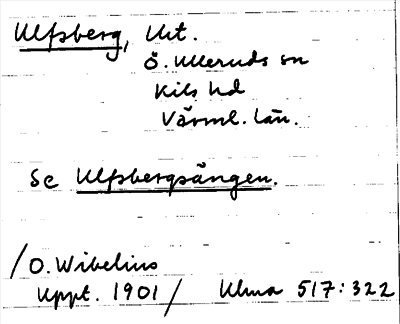 Ulfsberg, Utt.
Ö. Ulleruds sn
Kils hd
Värml. län.
Se Ulfsbergsängen.
/O. Wibelius
Uppt. 1901/ Ulma 517:322